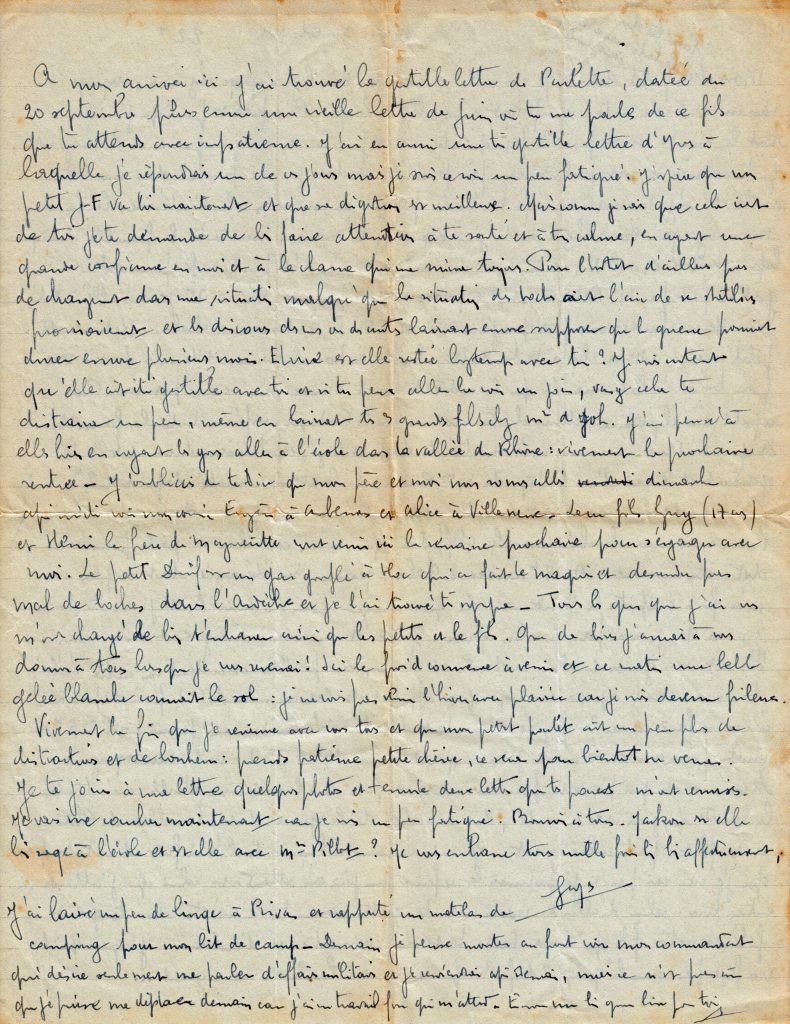 A mon arrivée ici j'ai trouvé la gentille lettre de Paulette, datée du
20 septembre puis encore une vieille lettre de Juin où tu me parles de ce fils
que tu attends avec impatience. J'ai eu aussi une très gentille lettre d'Yves à
laquelle je répondrais un de ces jours mais je suis ce soir un peu fatigué. J'espère que mon
petit J-F va bien maintenant et que sa digestion est meilleure. Mais comme je sais que cela vient
de toi je te demande de bien faire attention à ta santé et à ton calme, en ayant une
grande confiance en moi et à la chance qui me suive toujours. Pour l'instant d'ailleurs pas
de changement dans ma situation malgré que la situation des boches ait l'air de se stabiliser
provisoirement et les discours des uns ou des autres laissent encore supposer que la guerre pourrait
durer encore plusieurs mois. est elle restée longtemps avec toi ? Je suis content
qu'elle ait été gentille avec toi et si tu peux aller la voir un jour, vas y cela te
distraira un peu, même en laissant tes 3 grands fils chez Mme d J'ai pensé à
elles hier en voyant les gors aller à l'école dans la vallée du Rhône : vivement la prochaine
rentrée - J'oubliais de te dire que mon père et moi nous sommes allés vendredi dimanche
après midi voir nos cousins Eugène à Aubenas et Alice à Villeneuve - Leur fils Guy (17 ans)
et Henri le frère de Marguerite vont venir ici la semaine prochaine pour s'engager avec
moi. Le petit est un gas gonflé à bloc qui a fait le maquis et descendu pas
mal de boches dans l'Ardèche et je l'ai trouvé très sympa - Tous les gens que j'ai vus
m'ont chargé de bien t'embrasser ainsi que les petits et le fils. Que de bises j'aurai à vous
donner à tous lorsque je vous reverrai ! Ici le froid commence à venir et ce matin une belle
gelée blanche couvrait le sol : je ne vois pas venir l'hiver avec plaisir car je suis devenu frileux.
Vivement la fin que je revienne avec vous tous et que mon petit poulet ait un peu plus de
distractions et de bonheur : prends patience petite chérie, ce sera pour bientôt tu verras.
Je te joins à ma lettre quelques photos et t'envoie deux lettres que tes parents m'ont remises.
Je vais me coucher maintenant car je suis un peu fatigué. Bonsoir à tous. est elle
bien sage à l'école et est elle avec Mme Pillot ? Je vous embrasse tous mille fois bien bien affectueusement,
Guys
J'ai laissé un peu de linge à Privas et rapporté un matelas de
camping pour mon lit de camp - Demain je pense monter au front voir mon commandant
qui désire seulement me parler d'affaires militaires et je reviendrai après demain, mais ce n'est pas sûr
que je puisse me déplacer demain car j'ai un travail fou qui m'attend - Encore une bien grosse bise pour toi